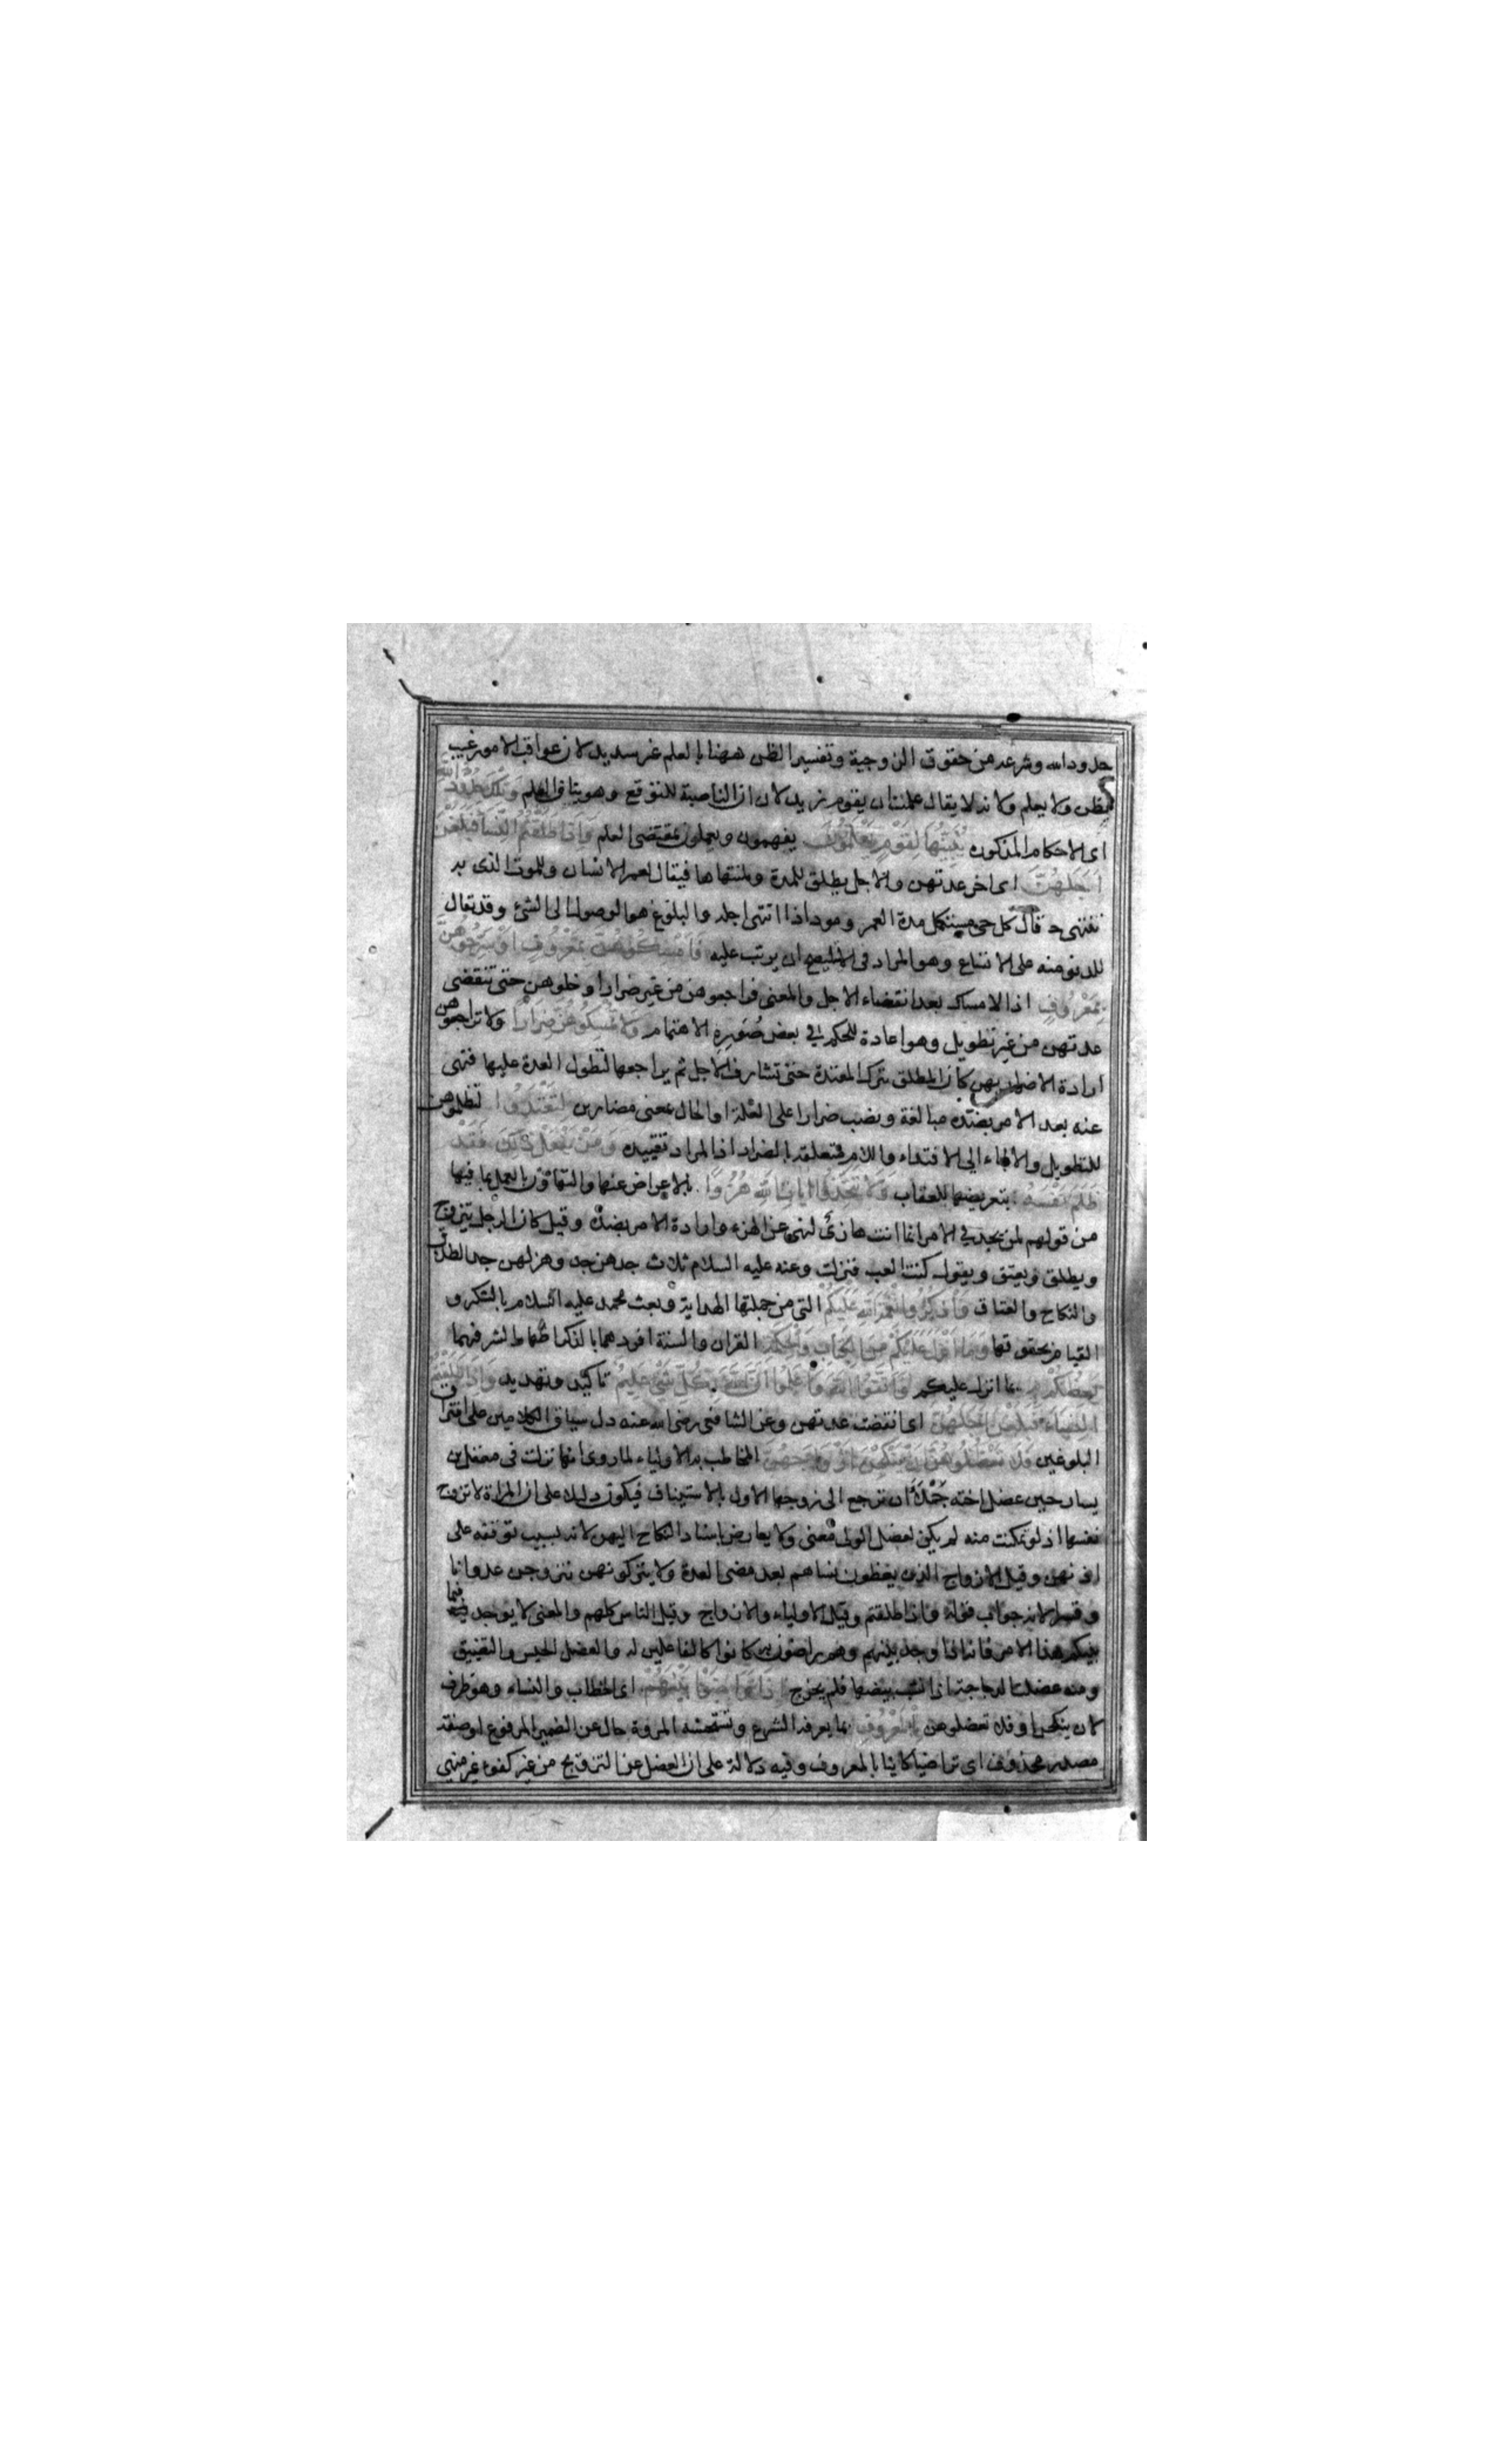 حدود الله وشرعه من حقوق الزوجية وتفسير الظن ههنا بالعلم غير سديد لان عواقب الامور غيب
يظن ولا يعلم ولانه لا يقال علمت ان يقوم زيد لان ان الناصبة للتوقع وهو ينافي العلم وتلك حدود الله
اى الاحكام المذكورة يُبَيِّنُهَا لِقَوْمٍ يَعْلَمُونَ يفهمون ويعملون بمقتضى العلم وَاِذَا طَلَّقْتُمُ النِّسَاءَ فَبَلَغْنَ
اَجَلَهُنَّ اى اخر عدتهن والاجل يطلق للمدة ولمنتهاها فيقال لعمر الانسان وللموت الذى به
ينتهى قال كل حى مستكمل مدة العمر ومود اذا انتهى اجله والبلوغ هو الوصول الى الشئ وقد يقال
للدنو منه على الاتساع وهو المراد فى الاية ليصح ان يرتب عليه فَاَمْسِكُوهُنَّ بِمَعْرُوفٍ اَوْ سَرِّحُوهُنَّ
بِمَعْرُوفٍ اذ لا امساك بعد انقضاء الاجل والمعنى فراجعوهن من غير ضرار او خلوهن حتى تنقضى
عدتهن من غير تطويل وهو اعادة للحكم في بعض صُوَرِهِ للاهتمام وَلَا تُمْسِكُوهُنَّ ضِرَارًا ولا تراجعوهن
ارادة الاضرار بهن كأن المطلق يترك المعتدة حتى تشارف الاجل ثم يراجعها لتطول العدة عليها فنهى
عنه بعد الامر بضده مبالغة ونصب ضرارا على العلة او الحال بمعنى مضارين لِتَعْتَدُوا لتظلموهن
للتطويل والالجاء الى الافتداء واللام متعلقة بالضرار اذ المراد تقييده وَمَنْ يَفْعَلْ ذٰلِكَ فَقَدْ
ظَلَمَ نَفْسَهُ بتعريضها للعقاب وَلَا تَتَّخِذُوا ايَاتِ اللهِ هُزُوًا بالاعراض عنها والتهاون بالعمل بما فيها
من قولهم لمن يجد في الامر انما انت هازئ لنهى عن الهزء وارادة الامر بضده وقيل كان الرجل يتزوج
ويطلق ويعتق ويقول كنت العب فنزلت وعنه عليه السلام ثلاث جدهن جد وهزلهن جد الطلاق
والنكاح والعتاق وَاذْكُرُوا نِعْمَةَ اللهِ عَلَيْكُمْ التى من جملتها الهداية وبعث محمد عليه السلام بالشكر و
القيام بحقوقها وَمَا اَنْزَلَ عَلَيْكُمْ مِنَ الْكِتَابِ وَالْحِكْمَةِ القران والسنة افردهما بالذكر اظهارا لشرفهما
يَعِظُكُمْ بِهِ بما انزل عليكم وَاتَّقُوا اللهَ وَاعْلَمُوا اَنَّ اللهَ بِكُلِّ شَيْءٍ عَلِيمٌ تأكيد وتهديد وَاِذَا طَلَّقْتُمُ
النِّسَاءَ فَبَلَغْنَ اَجَلَهُنَّ اى انقضت عدتهن وعن الشافى رضى الله عنه دل سياق الكلامين على افتراق
البلوغين فَلَا تَعْضُلُوهُنَّ اَنْ يَنْكِحْنَ اَزْوَاجَهُنَّ المخاطب به الاولياء لما روى انها نزلت فى معقل بن
يسار حين عضل اخته جُمْلاء ان ترجع الى زوجها الاول بالاستيناف فيكون دليلا على ان المراة لا تزوج
نفسها اذ لو تمكنت منه لم يكن لعضل الولى معنى ولا يعارض باسناد النكاح اليهن لانه بسبب توقفه على
اذنهن وقيل الازواج الذين يعضلون نساهم بعد مضى العدة ولا يتركونهن يتزوجن عدوانا
وقسرا لانه جواب قوله واذا طلقتم وقيل الاولياء والازواج وقيل الناس كلهم والمعنى لا يوجد فيما
بينكم هذا الامر فانه اذا وجد بينهم وهم راضون به كانوا كالفاعلين له والعضل الحبس والتضييق
ومنه عضلت الدجاجة اذا نشب بيضها فلم يخرج اِذَا تَرَاضَوْا بَيْنَهُمْ اى الخطاب والنساء وهو ظرف
لان ينكحن او فلا تعضلوهن بِالْمَعْرُوفِ بما يعرفه الشرع وتستحسنه المروة حال عن الضمير المرفوع او صفة
مصدر محذوف اى تراضيا كاينا بالمعروف وفيه دلالة على ان العضل عن التزويج من غير كفوء غير منهى